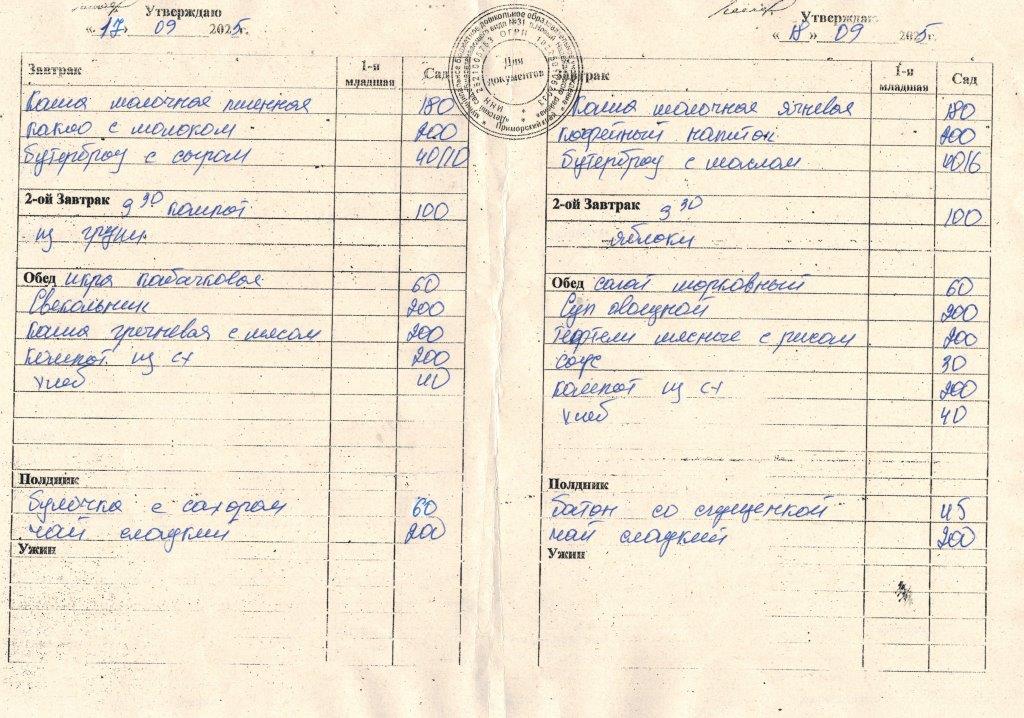 Утверждаю
« 17 » 09 2025г.
Завтрак 1-я младшая Сад
Каша молочная пшенная 180
какао с молоком 200
Бутерброд с сыром 40/10
2-ой Завтрак 9 30 компот 100
из груши
Обед икра кабачковая 60
Свекольник 200
Каша гречневая с мясом 200
Компот из сх 200
хлеб 40
Полдник
Булочка с сахаром 60
чай сладкий 200
Ужин
Для документов
Утверждаю
« 18 » 09 2025г.
Завтрак 1-я младшая Сад
Каша молочная ячневая 180
Кофейный напиток 200
Бутерброд с маслом 40/6
2-ой Завтрак 9 30 100
яблоки
Обед салат морковный 60
Суп овощной 200
Тефтели мясные с рисом 200
соус 30
компот из сх 200
хлеб 40
Полдник
Батон со сгущенкой 45
чай сладкий 200
Ужин